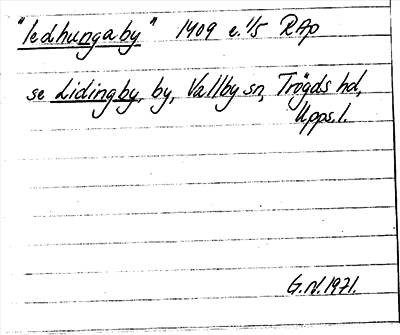 "ledhungaby" 1409 e. 1/5 RAp
se Lidingby, by, Vallby sn, Trögds hd,
Upps.l.
G.N. 1971.